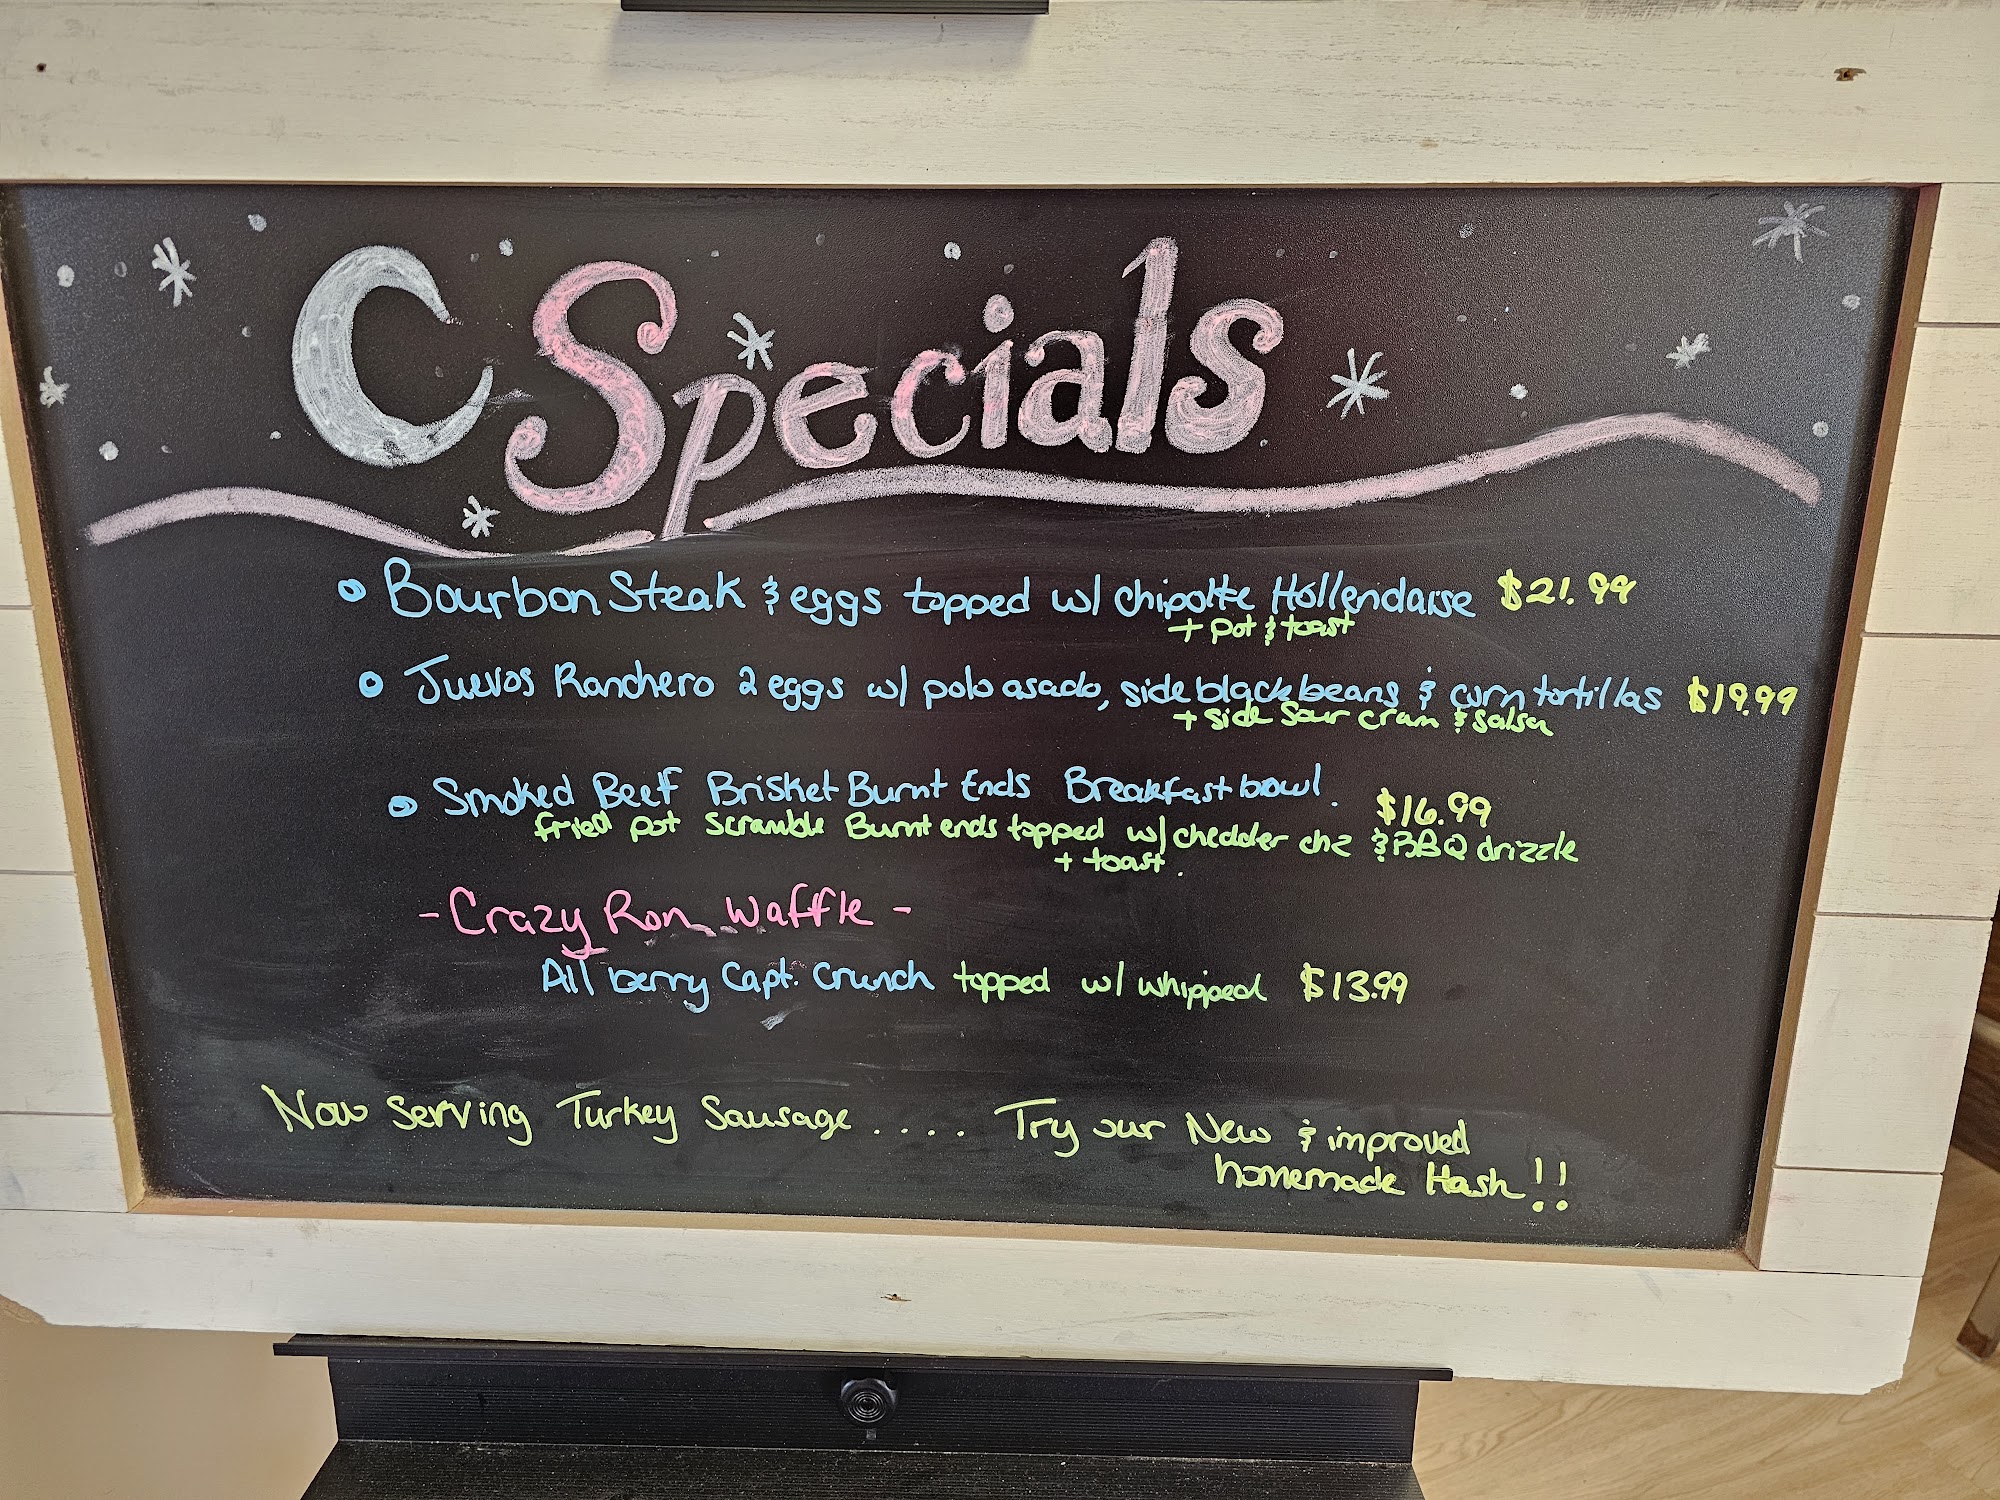 Specials
• Bourbon Steak & eggs topped w/ chipotte Hollendaise $21.99
+ pot & toast
• Juevos Ranchero 2 eggs w/ polo asado, side black beans & corn tortillas $19.99
+ side Sour cram & salsa
• Smoked Beef Brisket Burnt Ends Breakfast bowl. $16.99
fried pot scramble Burnt ends topped w/ chedder chz & BBQ drizzle
+ toast.
- Crazy Ron Waffle -
All berry Capt. Crunch topped w/ whipped $13.99
Now Serving Turkey Sausage .... Try our New & improved
homemade Hash!!